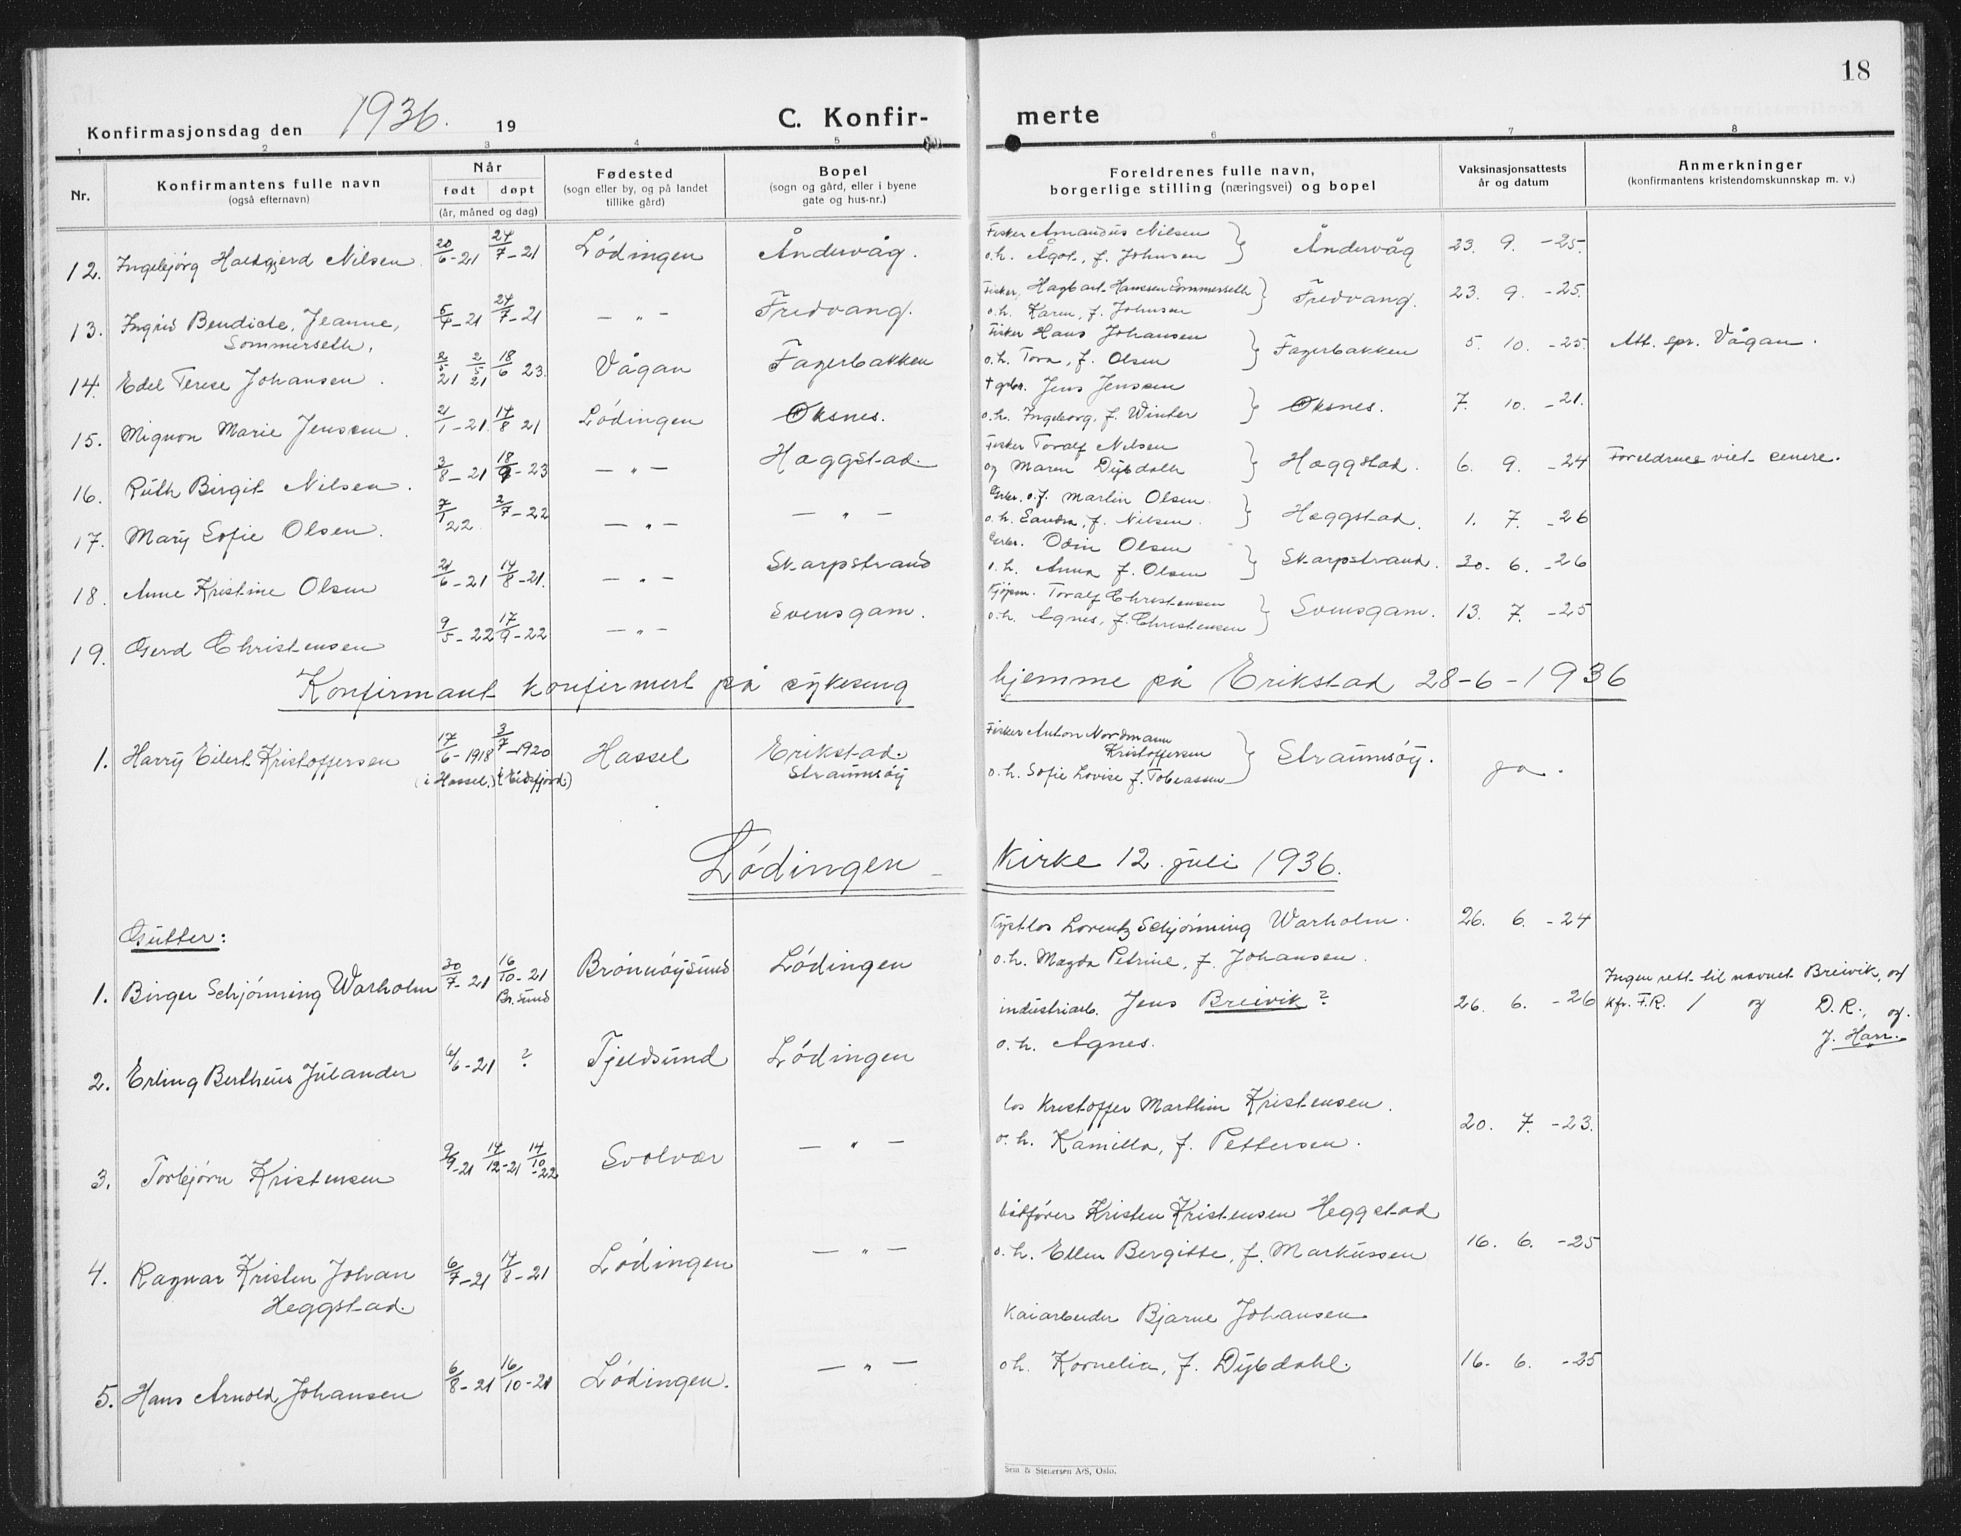 18
Konfirmasjonsdag den 1936. 19
C. Konfir-
merte
1 2 3 4 5 6 7 8
Nr.
Konfirmantens fulle navn
(også efternavn)
Når
født døpt
(år, måned og dag)
Fødested
(sogn eller by, og på landet
tillike gård)
Bopel
(sogn og gård, eller i byene
gate og hus-nr.)
Foreldrenes fulle navn,
borgerlige stilling (næringsvei) og bopel
Vaksinasjonsattests
år og datum
Anmerkninger
(konfirmantens kristendomskunnskap m. v.)
12. Ingebjørg Haldgjerd Nilsen 20/6-21 24/7-21 Lødingen Åndervåg.
Fisker Amandus Nilsen
o.h. Ågot, f. Johnsen } Åndervåg 23. 9. -25.
13. Ingrid Bendicte, Jeanne, 5/4-21 24/7-21 — " — Fredvang.
Sommerseth,
Fisker, Hagbart Hanssen Sommerseth
o.h. Karen, f. Johnsen } Fredvang. 23. 9. -25.
14. Edel Terese Johansen. 2/5 21 2/5 21 18/6 23. Vågan Fagerbakken
Fisker Hans Johansen
o.h. Tora, f. Olsen } Fagerbakken 5. 10. -25. Att. spr. Vågan.
15. Mignon Marie Jenssen. 21/1-21. 14/8 21 Lødingen Oksnes.
† grbr. Jens Jenssen
o.h. Ingeborg, f. Winter } Oksnes. 7. 10. -21.
16. Ruth Birgit Nilsen. 3/8-21 18/9-23 — " — Hæggstad.
Fisker Toralf Nilsen
og Maren Dybdahl } Hæggstad. 6. 9. -24 Foreldrene viet senere.
17. Mary Sofie Olsen. 7/1 22 2/7-22 — " — — " —
Grbr. o.f. Martin Olsen.
o.h. Sandra, f. Nilsen. } Heggstad. 1. 7. -26
18. Anne Kristine Olsen 21/6-21 14/8-21. — " — Skarpstrand
Grbr. Odin Olsen
o.h. Anna f. Olsen } Skarpstrand. 30. 6. -26
19. Gerd Christensen 9/5-22 17/9-22 — " — Svensgam.
Kjøpm. Toralf Christensen
o.h. Agnes, f. Christensen } Svensgam. 13. 7. -25
Konfirmant konfirmert på sykeseng hjemme på Erikstad 28-6-1936
1. Harry Eilert Kristoffersen 17/6-1918 3/7-1920 Hassel Erikstad.
(i Hassel.) (Eidsfjord.) Straumsøy
Fisker Anton Nordmann
Kristoffersen
o.h. Sofie Lovise f. Tobiassen } Straumsøy. ja.
Lødingen - Kirke 12. juli 1936.
Gutter:
1. Birger Schjønning Warholm 30/7-21 16/10-21 Brønnøysund Lødingen
Br. sund
Lorentz Schjønning Warholm. 26. 6. -24
o.h. Magda Petrine, f. Johansen.
2. Erling Bertheus Julander 6/6-21 ? Tjeldsund Lødingen
industriarb. Jens Breivik? 26. 6. -26
o.h. Agnes.
Ingen rett til navnet Breivik, og
kfr. F.R. / og D.R., og.
J. Harr.
3. Torbjørn Kristensen 9/9-21 14/12-21 14/10-22 Svolvær — " —
los Kristoffer Marthin Kristensen. 20. 7. -23.
o.h. Kamilla, f. Pettersen.
4. Ragnar Kristen Johan 6/7-21 14/8-21 Lødingen — " —
Heggstad.
båtfører Kristen Kristensen Heggstad
o.h. Ellen Bergitte, f. Markussen 16. 6. -25
5. Hans Arnold Johansen 6/8-21 16/10-21 Lødingen. — " —
Kaiarbeider Bjarne Johansen
o.h. Kornelia, f. Dybdahl. 16. 6. -25
Sem & Stenersen A/S, Oslo.